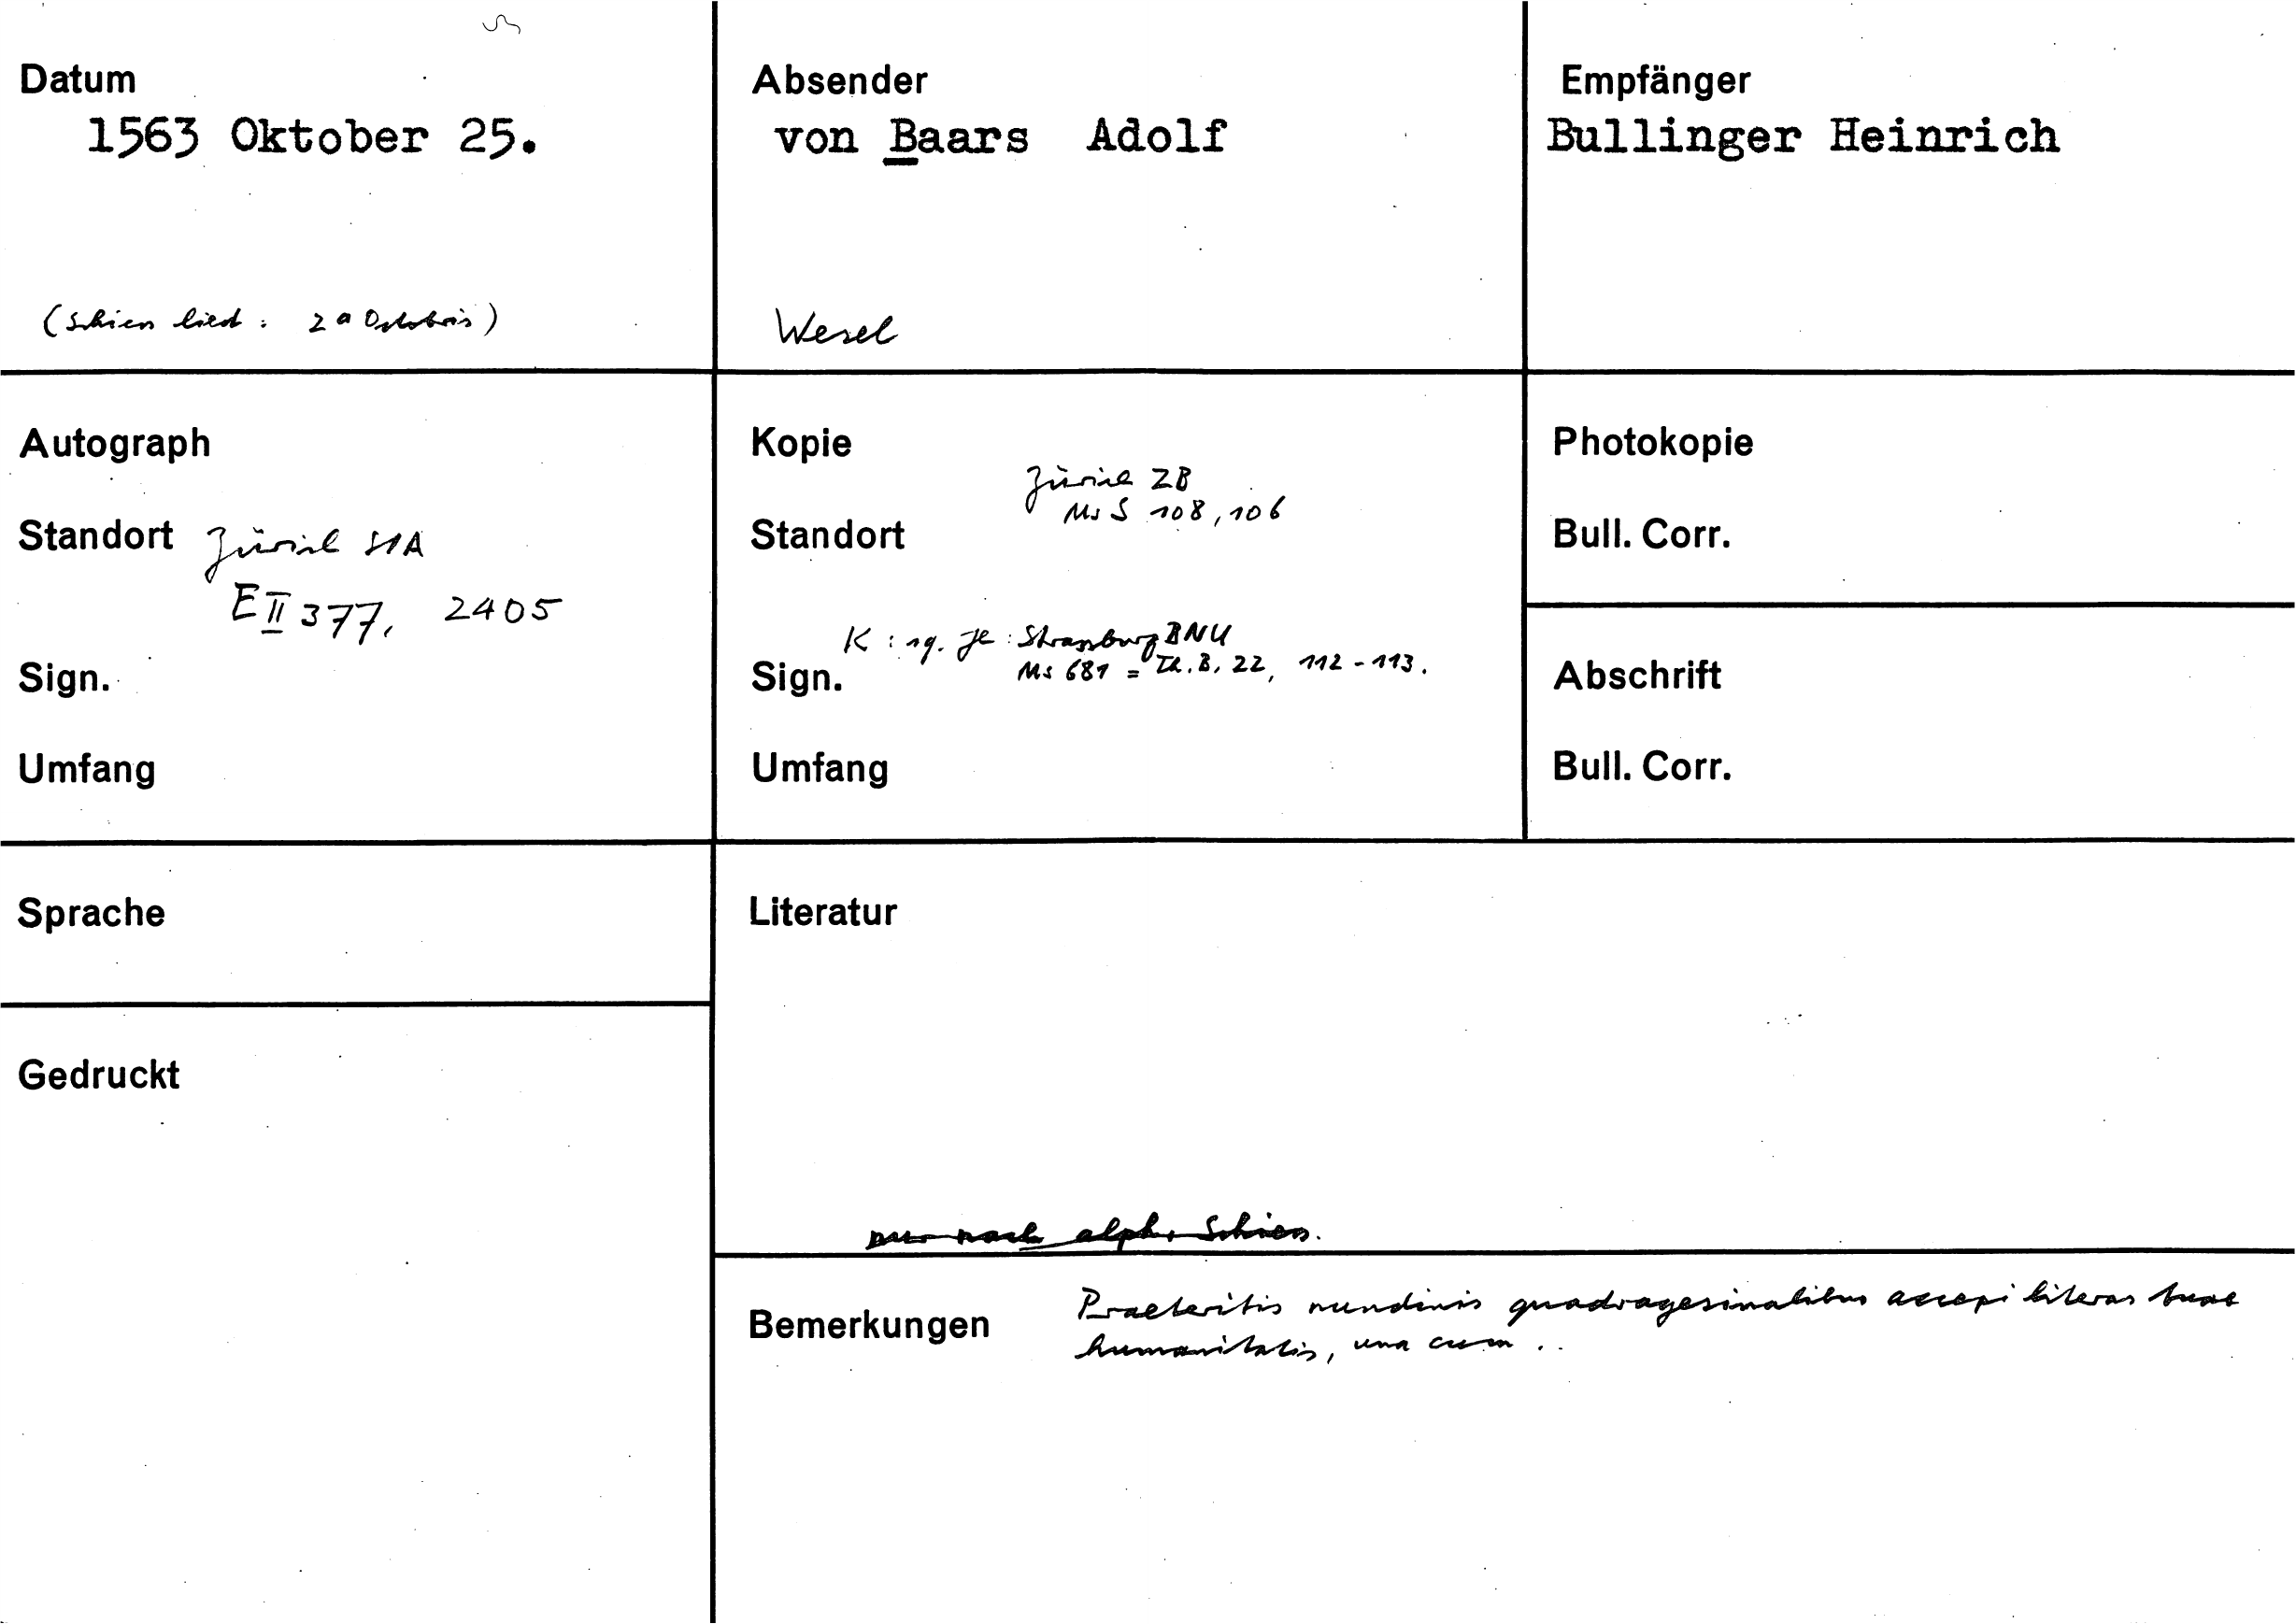 Datum
1563 Oktober 25.
(Schiess liest: 2a Octobris)
Absender
von Baars Adolf
Wesel
Empfänger
Bullinger Heinrich
Autograph
Standort Zürich StA
E II 377, 2405
Sign.
Umfang
Kopie
Zürich ZB
Ms S 108, 106
Standort
K: 19. Jh: Strassburg BNU
Sign. Ms 681 = Th. B. 22, 112-113.
Umfang
Photokopie
Bull. Corr.
Abschrift
Bull. Corr.
Sprache
Gedruckt
Literatur
nur nach alph. Schiess.
Bemerkungen Praeteritis nundinis quadragesimalibus accepi literas tuae
humanitatis, una cum ..